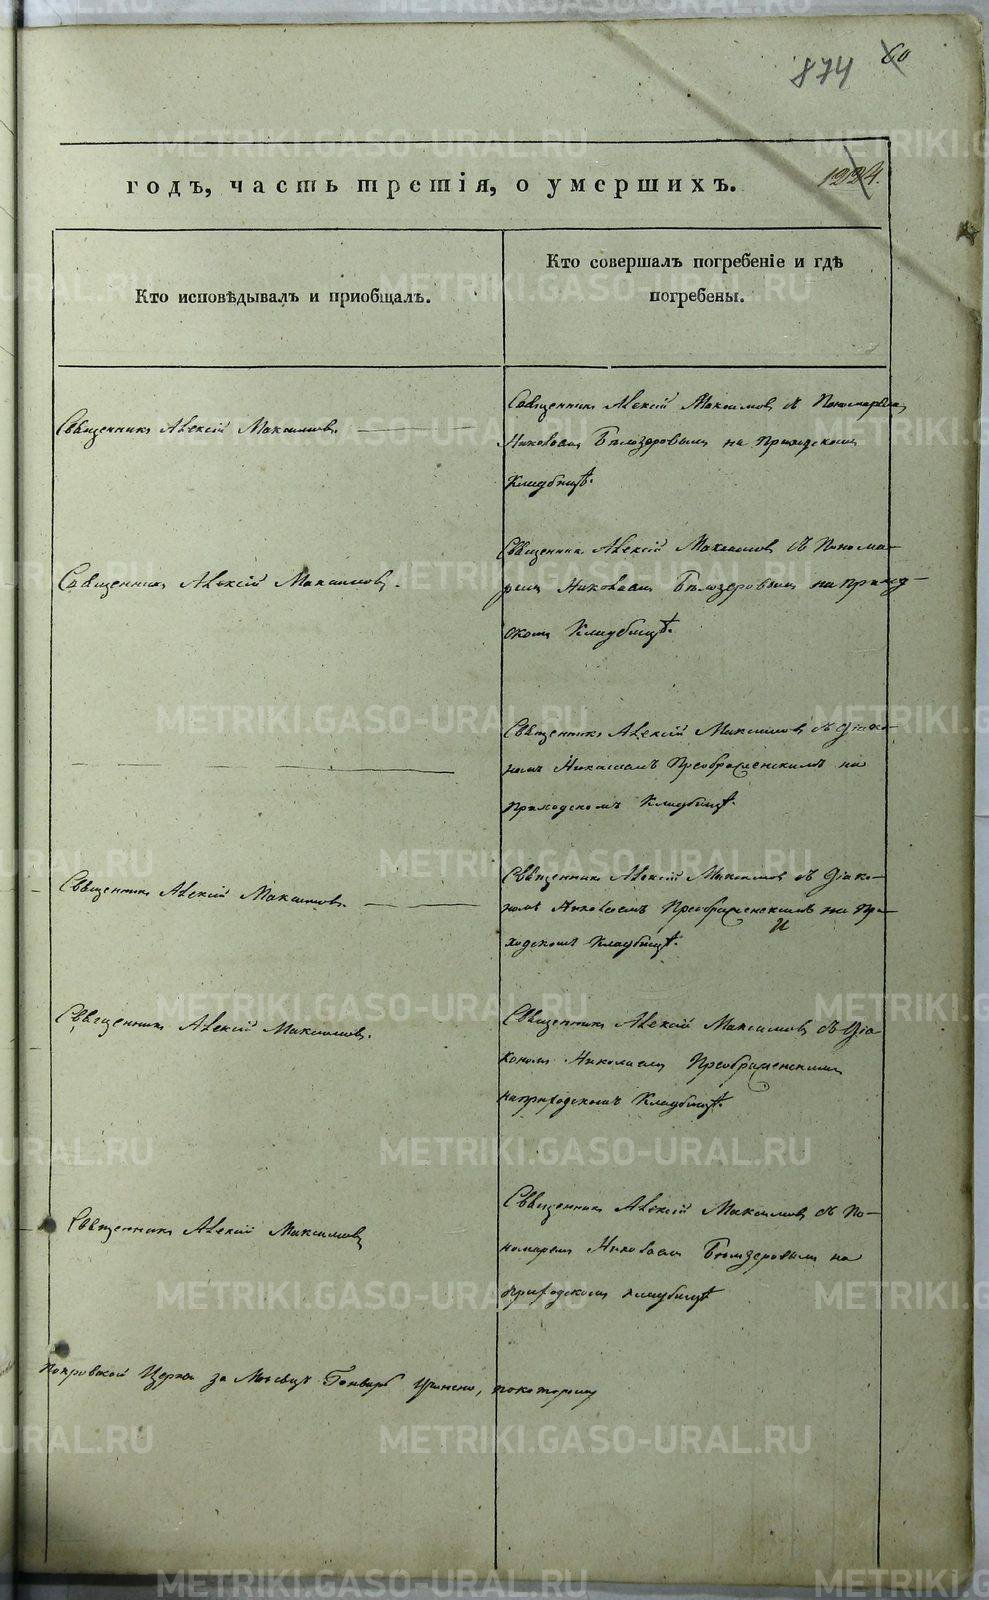 874 60
годъ, часть третія, о умершихъ. 1234.
Кто исповѣдывалъ и пріобщалъ.
Кто совершалъ погребеніе и гдѣ
погребены.
Священникъ Алексій Максимовъ
Священникъ Алексій Максимовъ съ Пономаремъ
Николаемъ Бѣлозеровымъ на Приходскомъ
Кладбищѣ.
Священникъ Алексій Максимовъ.
Священникъ Алексій Максимовъ съ Понома-
ремъ Николаемъ Бѣлозеровымъ на Приход-
скомъ Кладбищѣ.
Священникъ Алексій Максимовъ съ Діако-
номъ Николаемъ Преображенскимъ на
Приходскомъ Кладбищѣ.
Священникъ Алексій Максимовъ.
Священникъ Алексій Максимовъ съ Діако-
номъ Николаемъ Преображенскимъ на При-
ходскомъ Кладбищѣ.
Священникъ Алексій Максимовъ.
Священникъ Алексій Максимовъ съ Діа-
кономъ Николаемъ Преображенскимъ
на приходскомъ Кладбищѣ.
Священникъ Алексій Максимовъ
Священникъ Алексій Максимовъ съ По-
номаремъ Николаемъ Бѣлозеровымъ на
приходскомъ кладбищѣ
Покровской Церкви за Мѣсяцъ Генварь учинено, по которому
METRIKI.GASO-URAL.RU